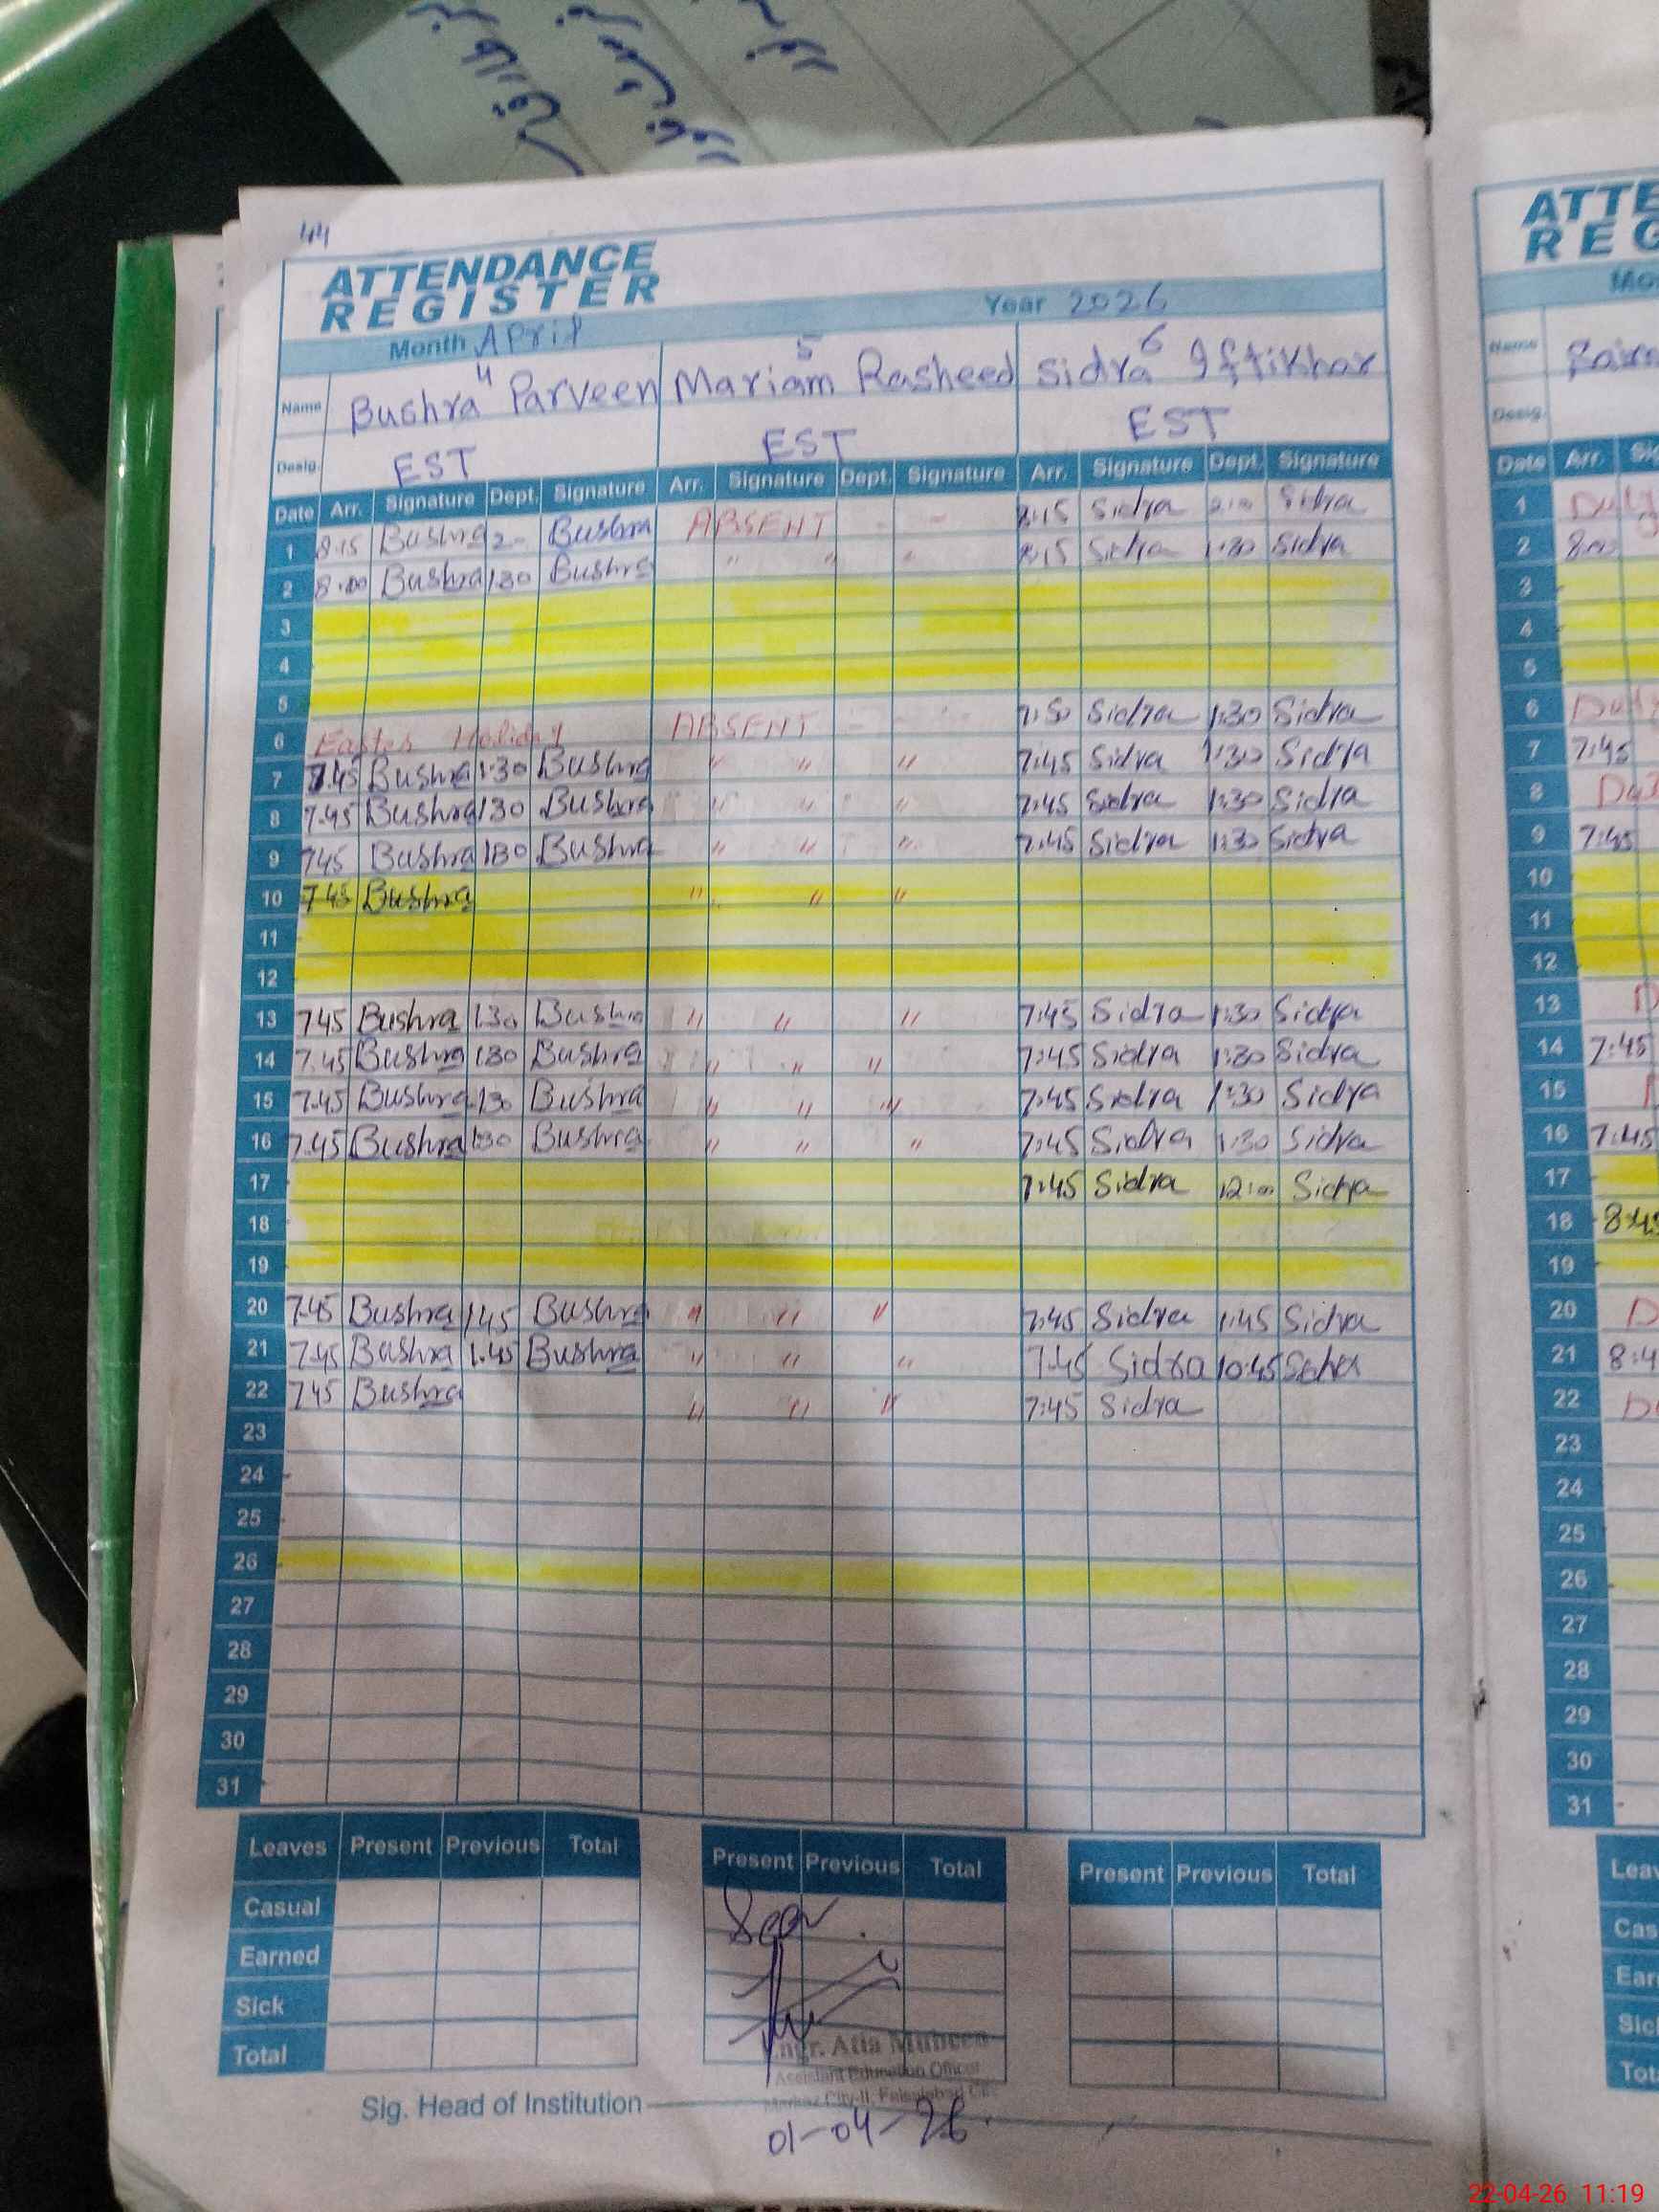 44
ATTENDANCE
REGISTER
Month April Year 2026
4 5 6
Name Bushra Parveen Mariam Rasheed Sidra Iftikhar
Desig. EST EST EST
Date Arr. Signature Dept. Signature Arr. Signature Dept. Signature Arr. Signature Dept. Signature
1 8.15 Bushra 2- Bushra ABSENT - - 8:15 Sidra 2:00 Sidra
2 8.00 Bushra 1.30 Bushra " " " 8:15 Sidra 1:30 Sidra
3
4
5
6 Easter Holiday ABSENT - - 7:50 Sidra 1:30 Sidra
7 7.45 Bushra 1.30 Bushra " " " 7:45 Sidra 1:30 Sidra
8 7.45 Bushra 130 Bushra " " " 7:45 Sidra 1:30 Sidra
9 745 Bushra 130 Bushra " " " 7:45 Sidra 1:30 Sidra
10 745 Bushra " " "
11
12
13 745 Bushra 1.30 Bushra " " " 7:45 Sidra 1:30 Sidra
14 7.45 Bushra 130 Bushra " " " 7:45 Sidra 1:30 Sidra
15 7.45 Bushra 130 Bushra " " " 7:45 Sidra 1:30 Sidra
16 7.45 Bushra 1:30 Bushra " " " 7:45 Sidra 1:30 Sidra
17 7:45 Sidra 12:00 Sidra
18
19
20 7.45 Bushra 1.45 Bushra " " " 7:45 Sidra 1:45 Sidra
21 7.45 Bushra 1.45 Bushra " " " 7:45 Sidra 10:45
22 745 Bushra " " " 7:45 Sidra
23
24
25
26
27
28
29
30
31
Leaves Present Previous Total Present Previous Total Present Previous Total
Casual
Earned
Sick
Total
Engr. Atia Mubeen
Assistant Education Officer
Markaz City-II, Faisalabad
Sig. Head of Institution
01-04-26
ATTE
REG
Name
Desig.
Date Arr.
1
2 8:00
3
4
5
6
7 7:45
8
9 7:45
10
11
12
13
14 7:45
15
16 7:45
17
18 8:45
19
20
21 8:4
22
23
24
25
26
27
28
29
30
31
22-04-26 11:19